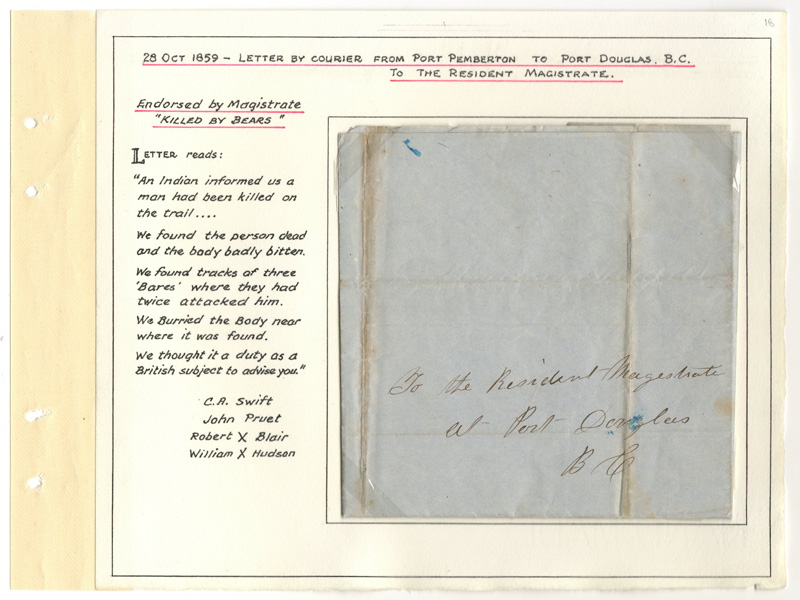 16
28 OCT 1859 – LETTER BY COURIER FROM PORT PEMBERTON TO PORT DOUGLAS, B.C.
TO THE RESIDENT MAGISTRATE.
Endorsed by Magistrate
"KILLED BY BEARS"
LETTER reads:
"An Indian informed us a
man had been killed on
the trail....
We found the person dead
and the body badly bitten.
We found tracks of three
'Bares' where they had
twice attacked him.
We Burried the Body near
where it was found.
We thought it a duty as a
British subject to advise you."
C.A. Swift
John Pruet
Robert X Blair
William X Hudson
To the Resident Magestrate
at Port Douglas
B C